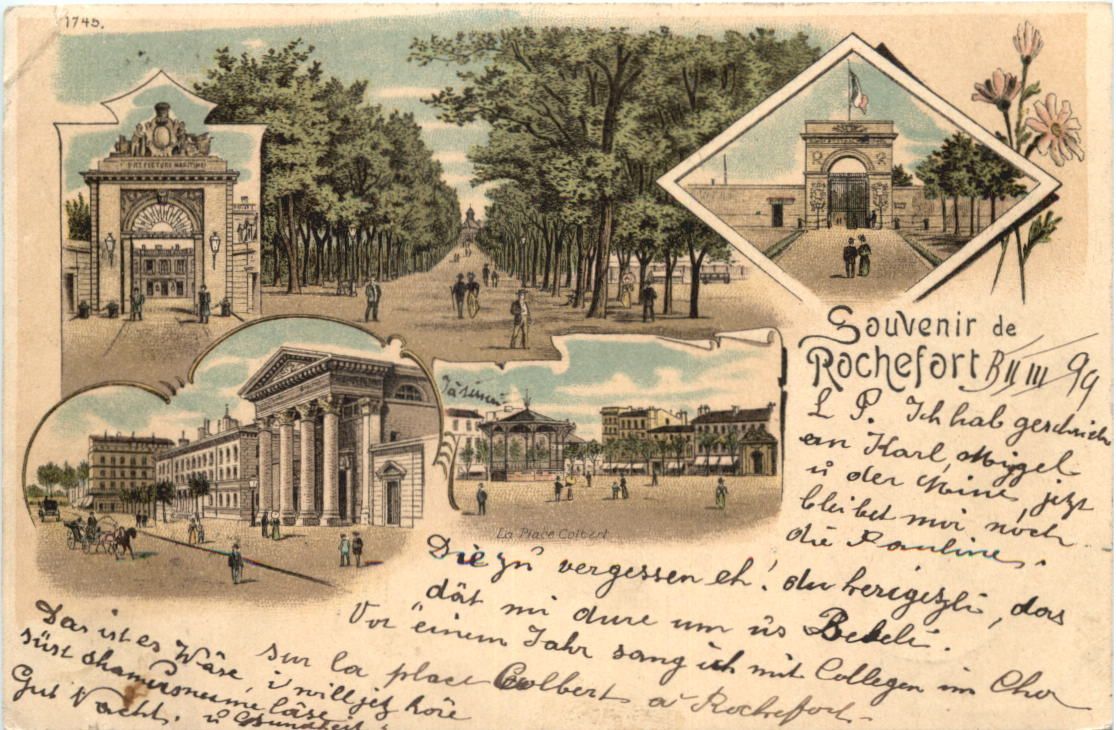 1745.
PREFECTURE MARITIME
Souvenir de
Rochefort B II III 99
L P. Ich hab geschrieb
em Karl, Miggel
u der Mine, jetzt
bleibet mir noch
die Pauline.
La Place Colbert
Die zu vergessen eh! du herigezli, das
dät mi dure um üs Bebeli.
Vor einem Jahr sang ich mit Collegen im Chor
sur la place Colbert à Rochefort.
Das ist es Wäse, i will jetz höre
süst chame's nümme läse
Gut Nacht. u Gsundheit!